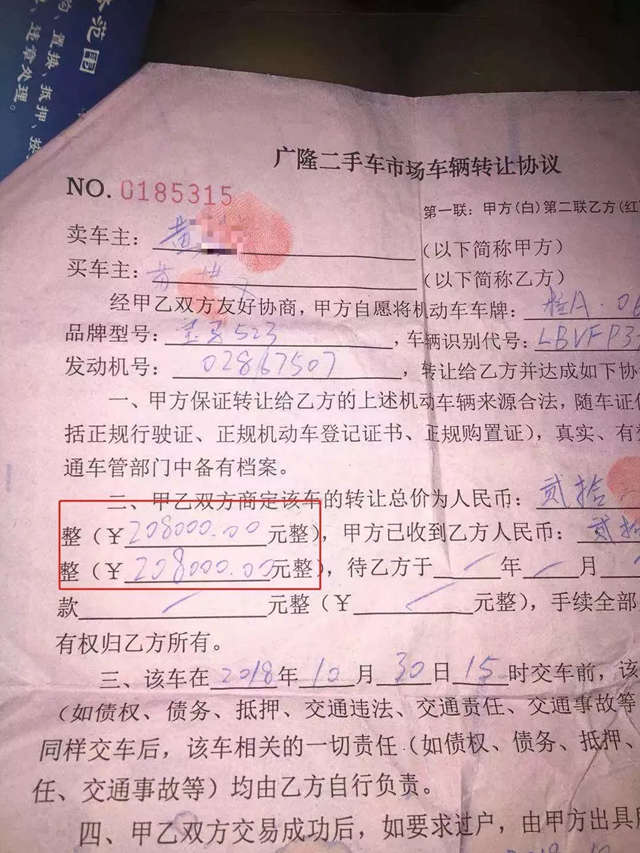 范围
置换、抵押、
违章处理。
广隆二手车市场车辆转让协议
NO. 0185315
第一联：甲方(白)第二联乙方(红
卖车主：黄
（以下简称甲方）
买车主：
（以下简称乙方）
经甲乙双方友好协商，甲方自愿将机动车车牌：桂A·0
品牌型号：宝马523，车辆识别代号：LBVFP3
发动机号：02867507，转让给乙方并达成如下协
一、甲方保证转让给乙方的上述机动车辆来源合法，随车证件
括正规行驶证、正规机动车登记证书、正规购置证），真实、有
通车管部门中备有档案。
二、甲乙双方商定该车的转让总价为人民币：贰拾
整（¥208000.00元整），甲方已收到乙方人民币：贰拾
整（¥208000.00元整），待乙方于/年/月
款/元整（¥/元整），手续全部
有权归乙方所有。
三、该车在2018年10月30日15时交车前，该
（如债权、债务、抵押、交通违法、交通责任、交通事故等
同样交车后，该车相关的一切责任（如债权、债务、抵押、
任、交通事故等）均由乙方自行负责。
四、甲乙双方交易成功后，如要求过户，由甲方出具